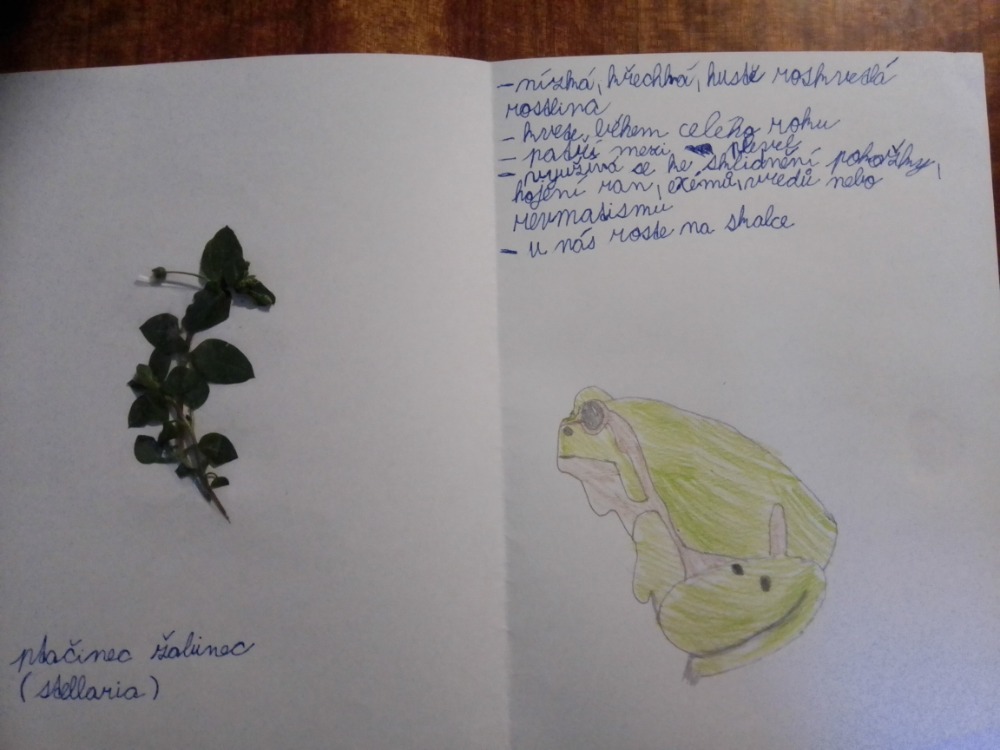 ptačinec žabinec
(stellaria)
- nízká, křehká, hustě rozkvetlá
rostlina
- kvete během celého roku
- patří mezi plevel
- využívá se ke zklidnění pokožky,
hojení ran, exémů, vředů nebo
revmatismu
- u nás roste na skalce